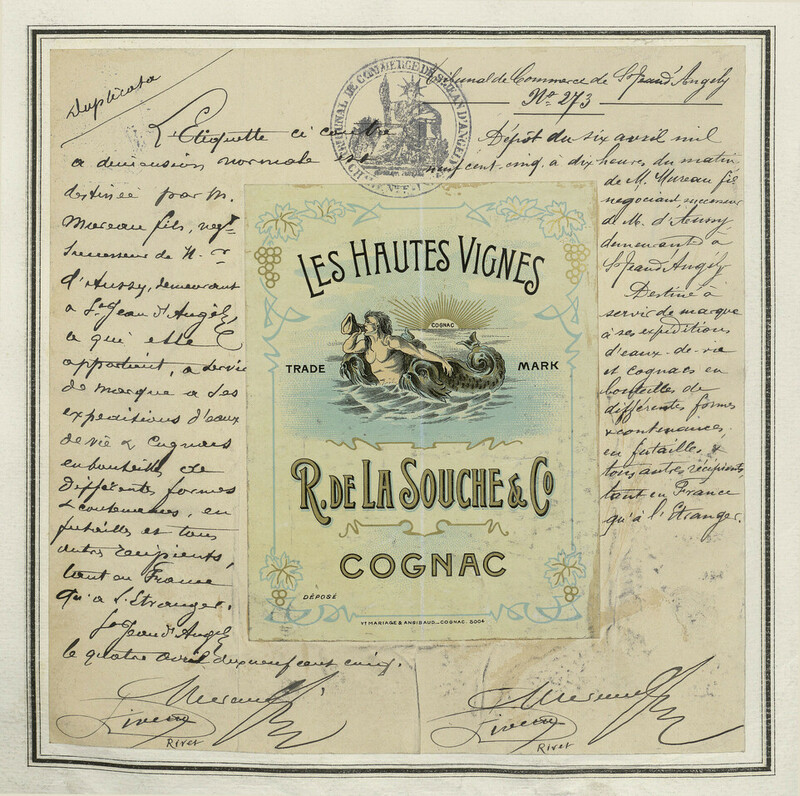 Duplicata
L'Etiquette ci contre
a dimension normale est
destinée par M.
Mureau fils, negt
Successeur de M. Vr
d'Aussy, demeurant
a St Jean d'Angély
a qui elle
appartient, a servir
de marque a ses
expeditions d'eaux
de vie & Cognacs
en bouteilles de
différentes formes
& contenances, en
futailles et tous
autres récipients,
tant en France
qu'a l'Etranger.
St Jean d'Angély
le quatre avril dix neuf cent cinq.
Rivet
TRIBUNAL DE COMMERCE DE ST JEAN D'ANGELY
LES HAUTES VIGNES
COGNAC
TRADE MARK
R. DE LA SOUCHE & Co
COGNAC
DÉPOSÉ
VT MARIAGE & ANGIBAUD_COGNAC. 5004
Tribunal de Commerce de St Jean d'Angély
No 273
Dépôt du six avril mil
neuf cent cinq, à dix heures du matin
de M. Mureau fils
negociant, successeur
de M. d'Aussy,
demeurant à
St Jean d'Angély
Destiné à
servir de marque
à ses expéditions
d'eaux-de-vie
et cognacs en
bouteilles de
différentes formes
& contenances,
en futailles, &
tous autres récipients,
tant en France
qu'à l'Etranger.
Rivet